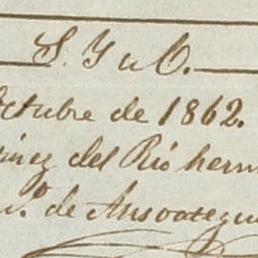 S. Y u O.
Octubre de 1862.
inez del Rio herm
de Ansoategui